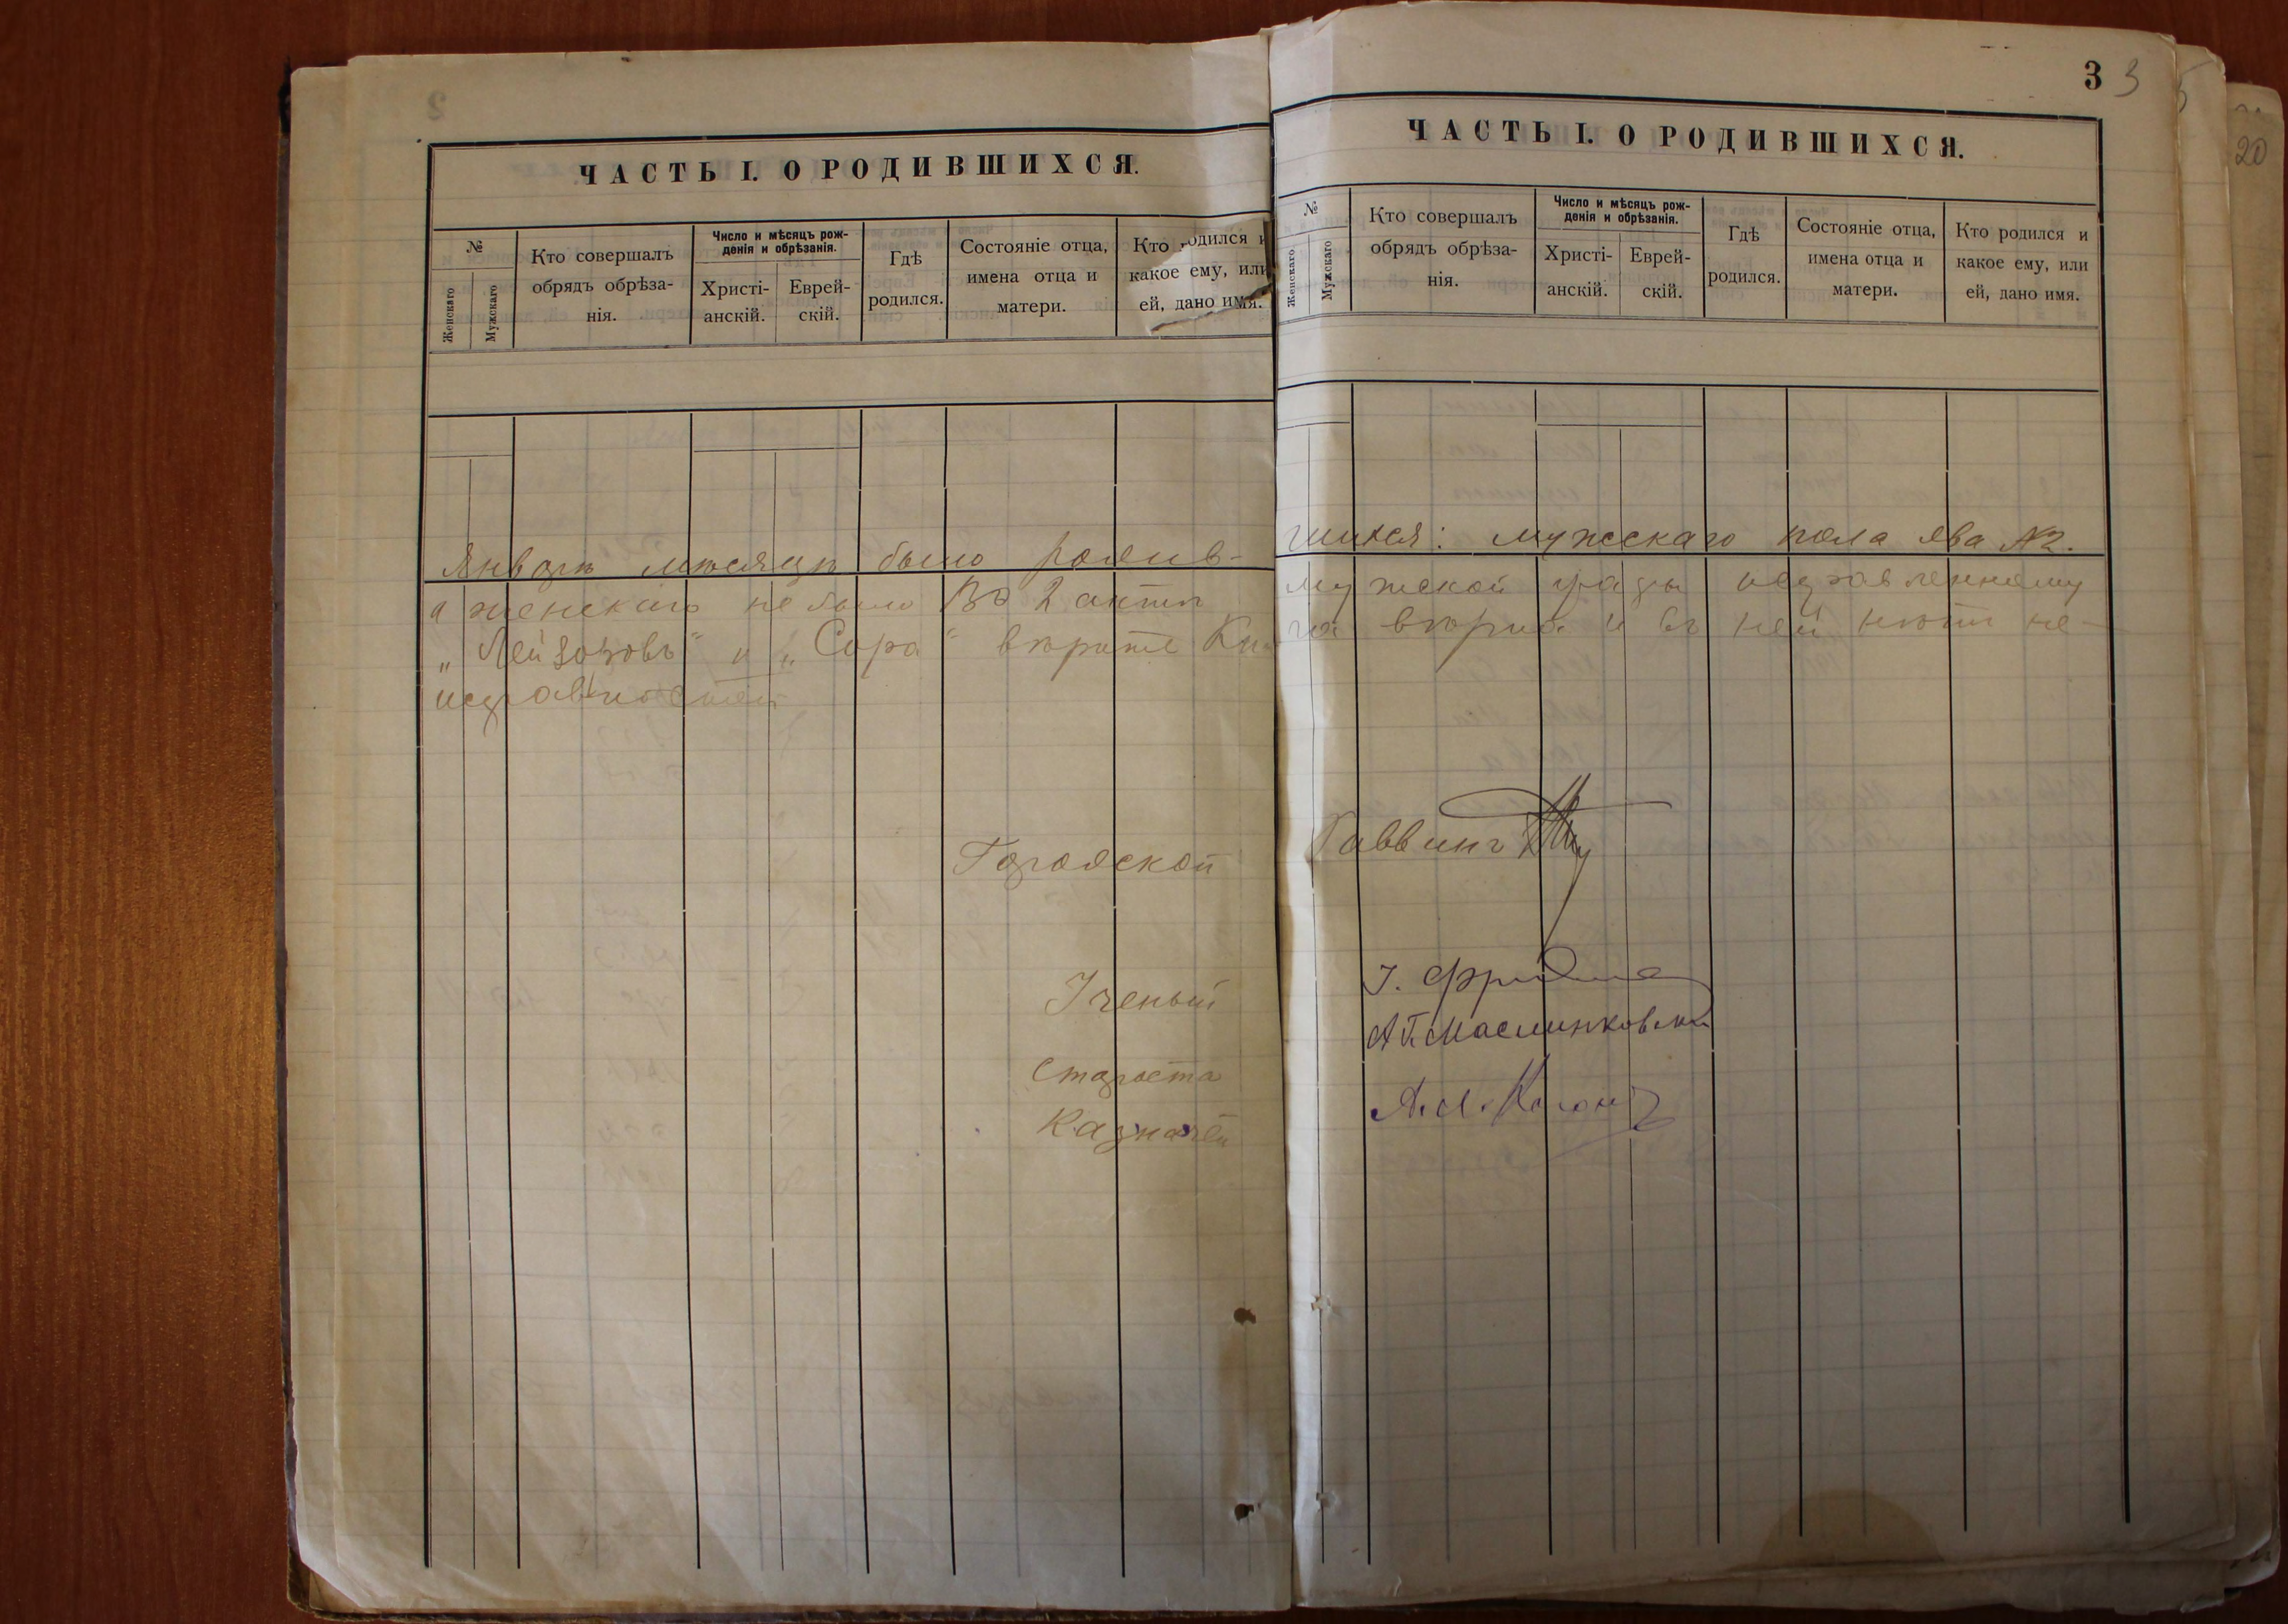 ЧАСТЬ I. О РОДИВШИХСЯ.
№
Женскаго
Мужскаго
Кто совершалъ
обрядъ обрѣза-
нія.
Число и мѣсяцъ рож-
денія и обрѣзанія.
Христі-
анскій.
Еврей-
скій.
Гдѣ
родился.
Состояніе отца,
имена отца и
матери.
Кто родился и
какое ему, или
ей, дано имя.
Январѣ мѣсяцѣ было родив-
а женскаго не было Во 2 актѣ
„Лейзоровъ" и „Сора" вѣрите Кни
исправностей
Городской
Ученый
Староста
Казначей
3 3
5
20
ЧАСТЬ I. О РОДИВШИХСЯ.
№
Женскаго
Мужскаго
Кто совершалъ
обрядъ обрѣза-
нія.
Число и мѣсяцъ рож-
денія и обрѣзанія.
Христі-
анскій.
Еврей-
скій.
Гдѣ
родился.
Состояніе отца,
имена отца и
матери.
Кто родился и
какое ему, или
ей, дано имя.
шихся: мужескаго пола два №2.
мужской графы исправленному
га вѣрна и въ ней нѣтъ не-
Раввинъ